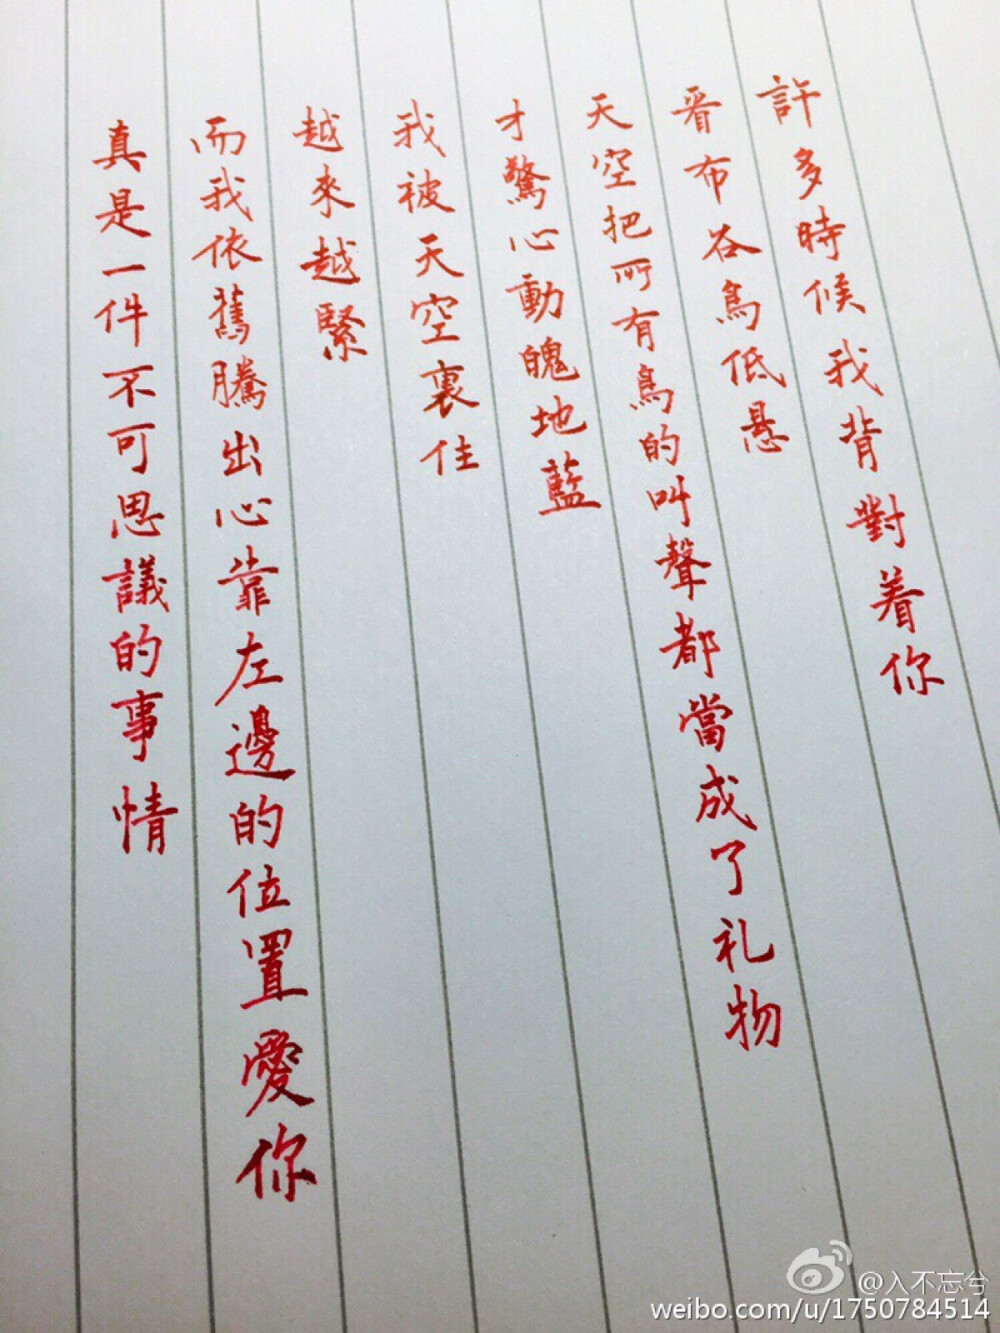 許多時候我背對着你
看布谷鳥低悬
天空把所有鳥的叫聲都當成了礼物
才驚心動魄地藍
我被天空裹住
越來越緊
而我依舊騰出心靠左邊的位置愛你
真是一件不可思議的事情
@入不忘兮
weibo.com/u/1750784514